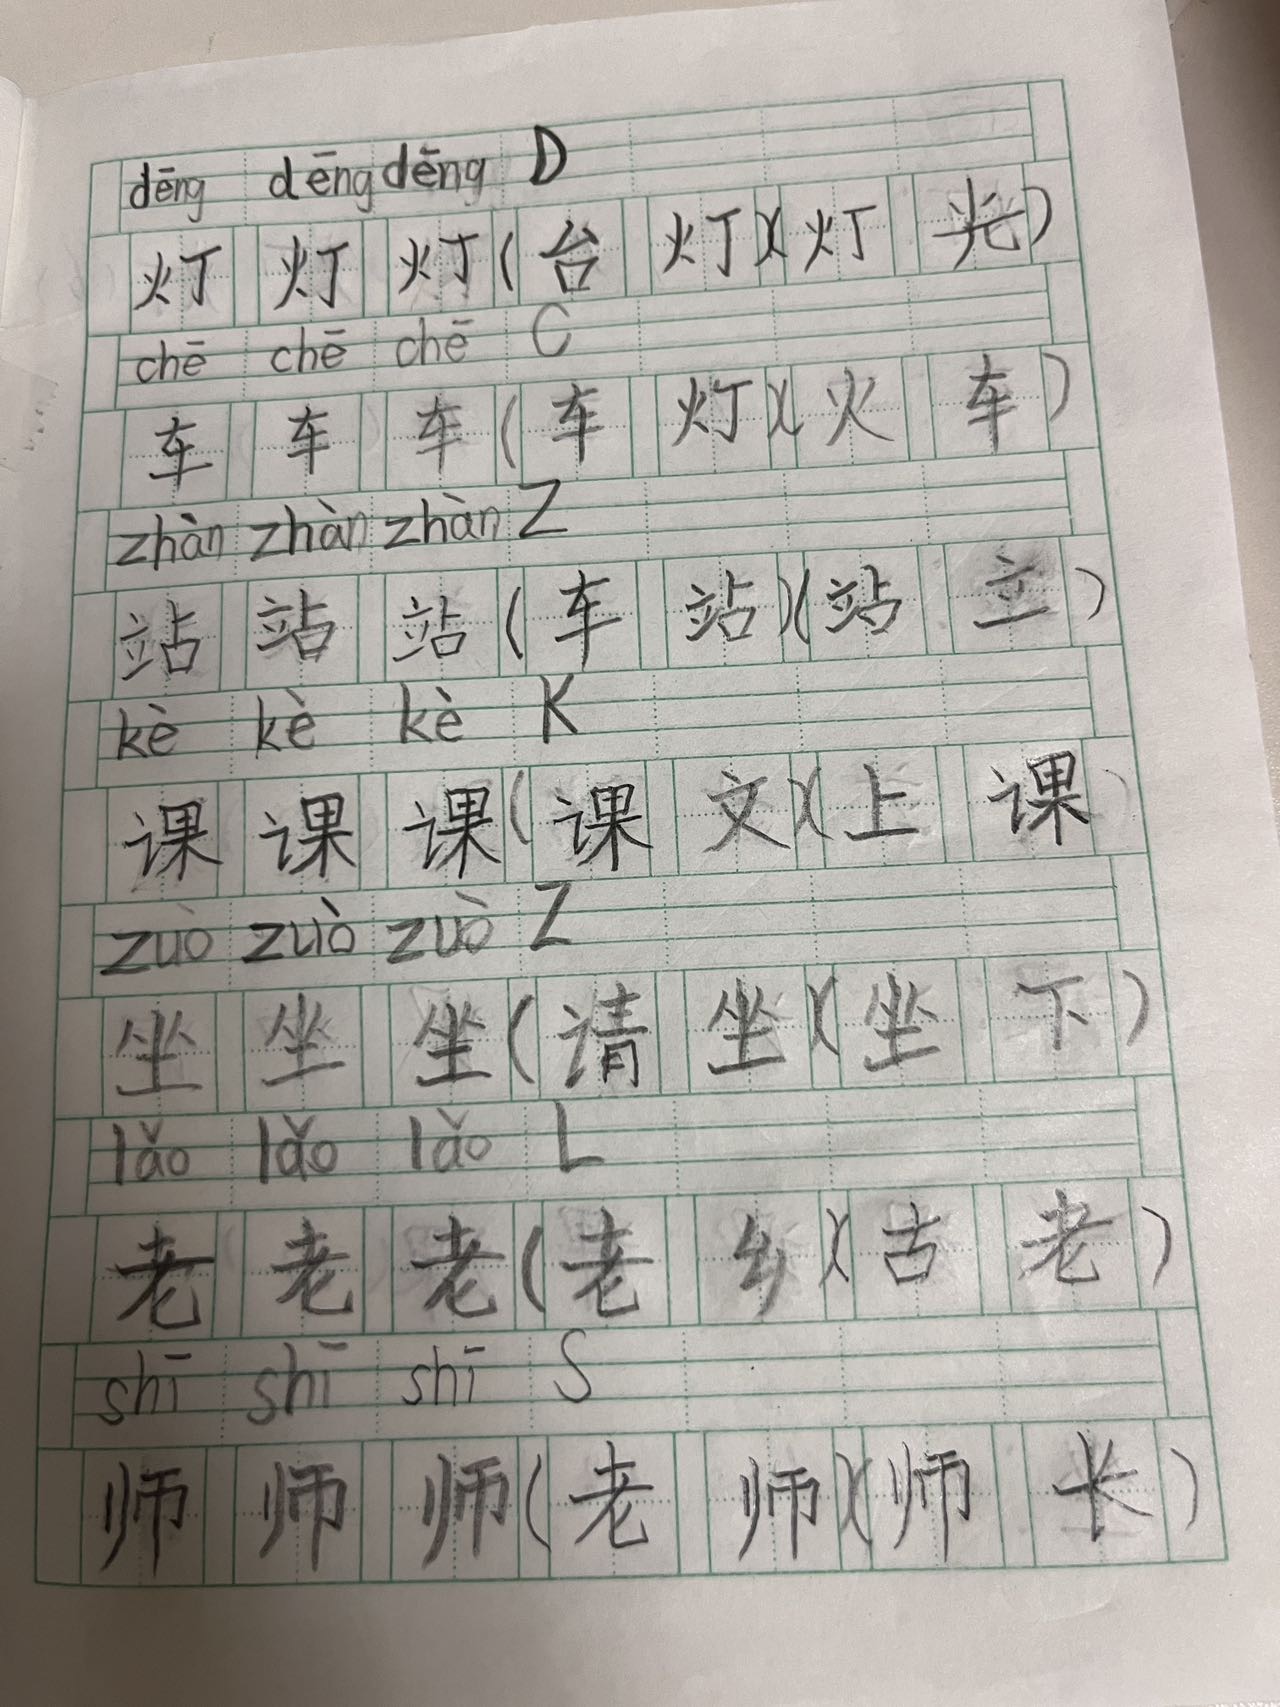 dēng dēng dēng D
灯 灯 灯 (台 灯)(灯 光)
chē chē chē C
车 车 车 (车 灯)(火 车)
zhàn zhàn zhàn Z
站 站 站 (车 站)(站 立)
kè kè kè K
课 课 课 (课 文)(上 课)
zuò zuò zuò Z
坐 坐 坐 (请 坐)(坐 下)
lǎo lǎo lǎo L
老 老 老 (老 乡)(古 老)
shī shī shī S
师 师 师 (老 师)(师 长)